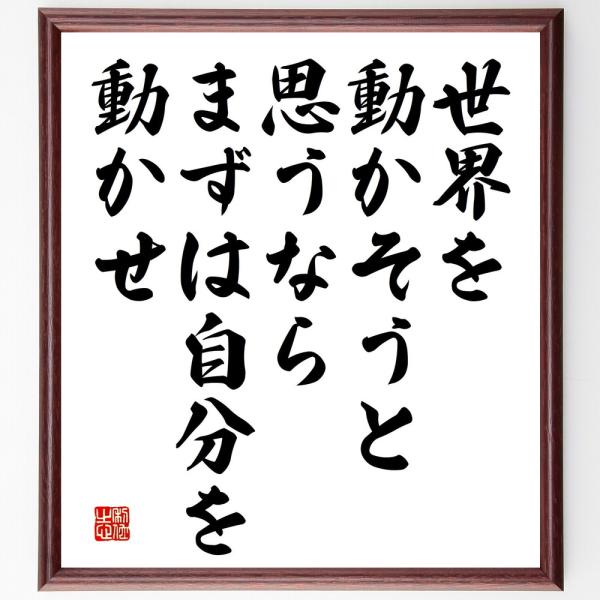 世界を
動かそうと
思うなら
まずは自分を
動かせ